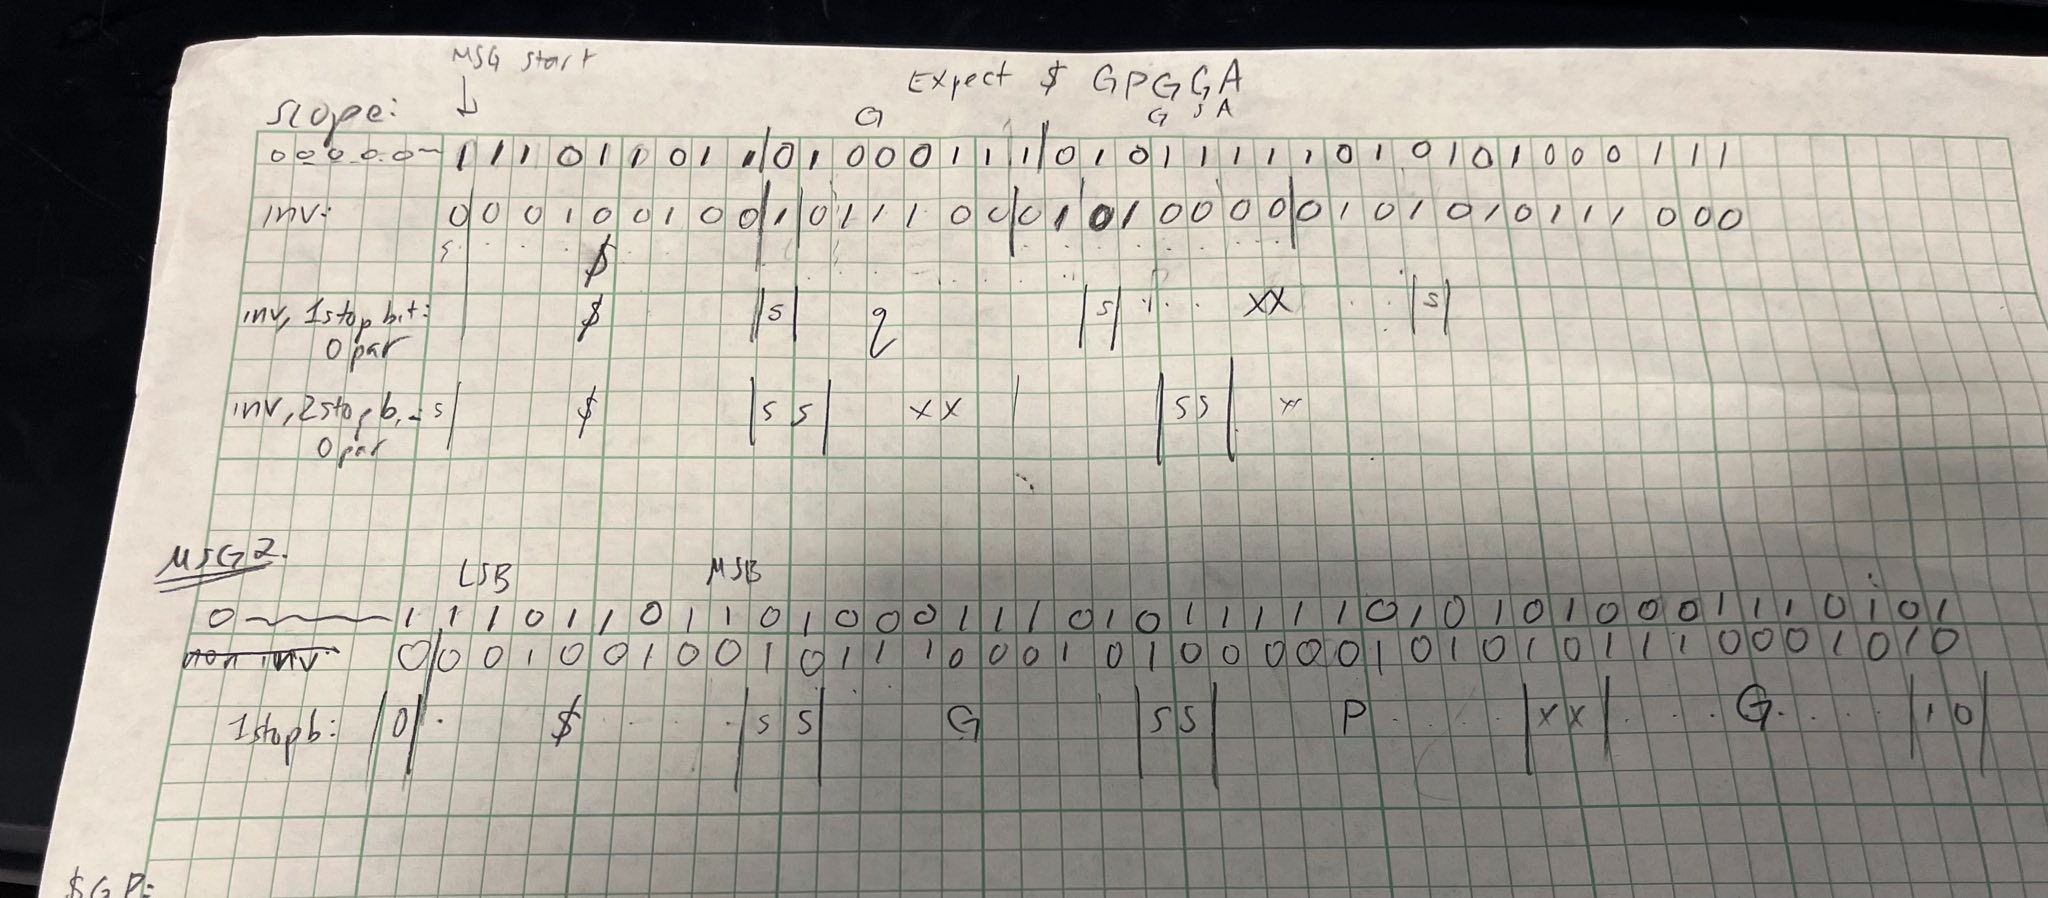 MSG start
Expect $ GPGGA
G G S A
scope:
0 0 0 0 0 ~ 1 1 1 0 1 1 0 1 1 0 1 0 0 0 1 1 1 0 1 0 1 1 1 1 1 0 1 0 1 0 1 0 0 0 1 1 1
inv: 0 0 0 1 0 0 1 0 0 1 0 1 1 1 0 0 0 1 0 1 0 0 0 0 0 1 0 1 0 1 0 1 1 1 0 0 0
s $
inv, 1 stop bit: $ |s| q |s| XX |s|
0 par
inv, 2 stop b. - s| $ |s s| xx | |s s| x
0 par
MSG2.
LSB MSB
0 ~ 1 1 1 0 1 1 0 1 1 0 1 0 0 0 1 1 1 0 1 0 1 1 1 1 1 0 1 0 1 0 1 0 0 0 1 1 1 0 1 0 1
non inv: 0 0 0 1 0 0 1 0 0 1 0 1 1 1 0 0 0 1 0 1 0 0 0 0 0 1 0 1 0 1 0 1 1 1 0 0 0 1 0 1 0
1stopb: |0| $ |s s| G |s s| P |x x| G |1 0|
$GP: